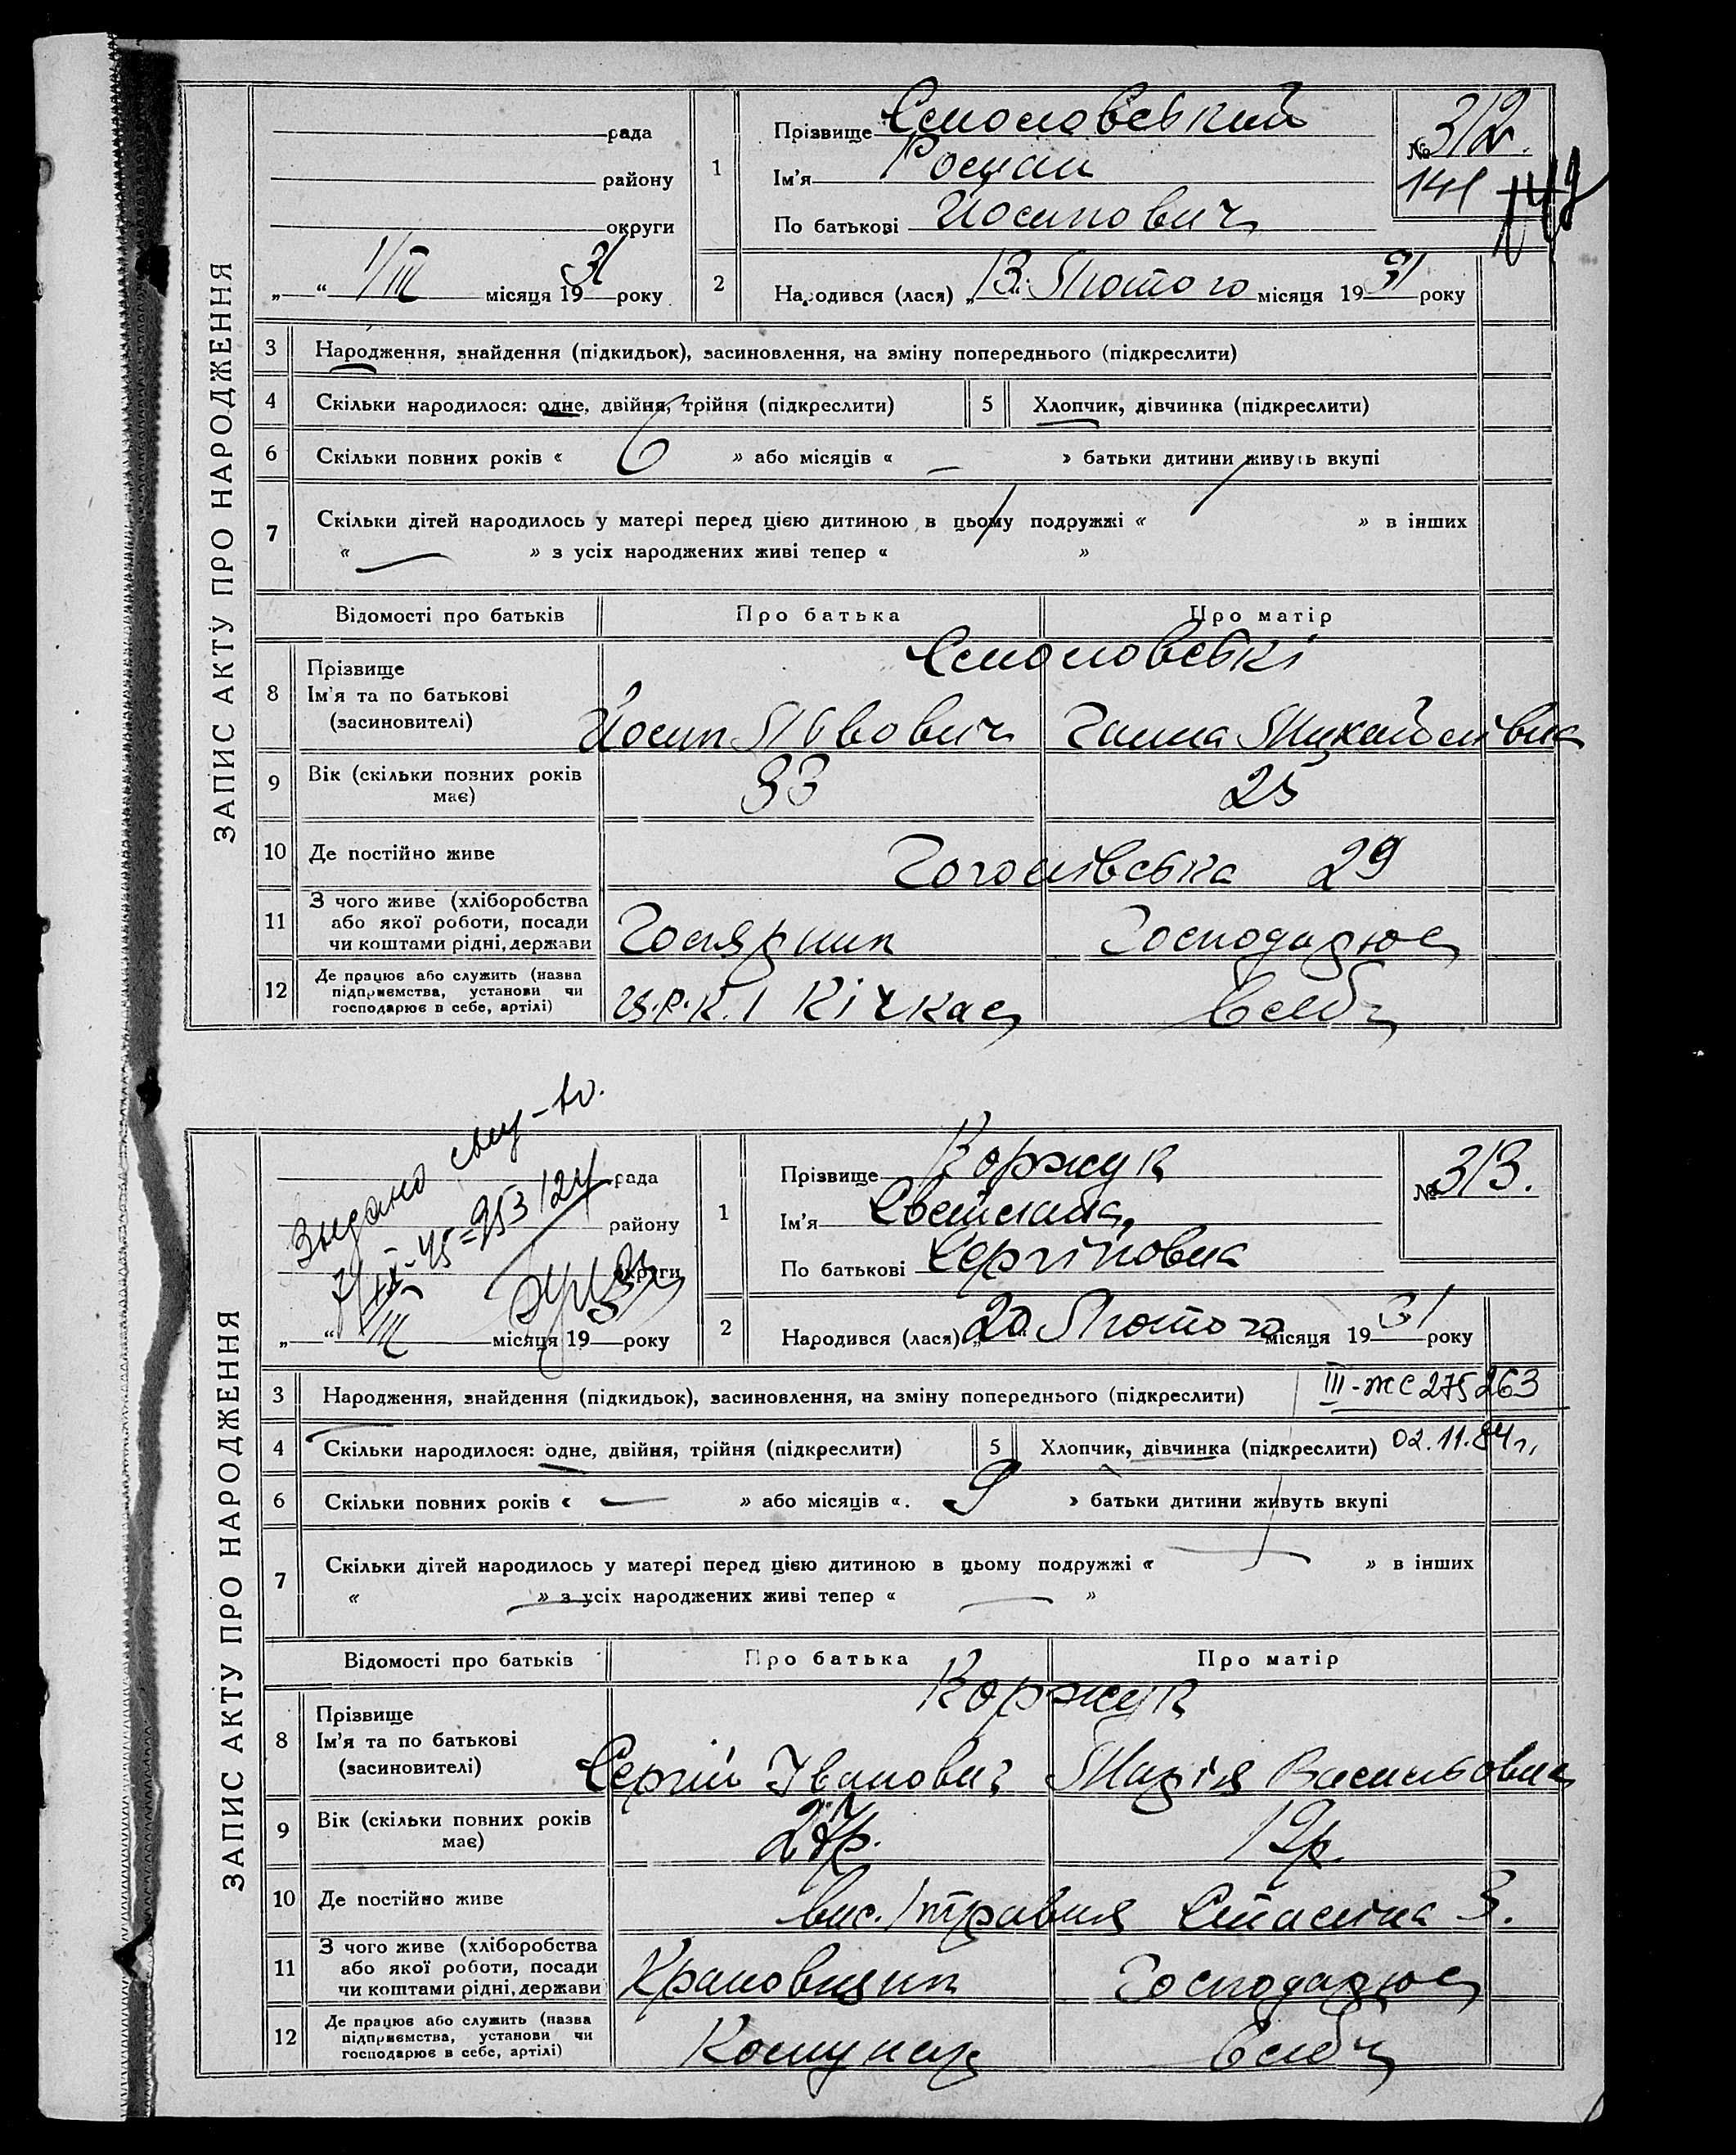 ЗАПИС АКТУ ПРО НАРОДЖЕННЯ
рада
району
округи
„ “ 1/III місяця 1931 року
1
Прізвище Смоловський
Ім'я Роман
По батькові Йосипович
№ 312.
141
2
Народився (лася) „13“ Лютого місяця 1931 року
3 Народження, знайдення (підкидьок), засиновлення, на зміну попереднього (підкреслити)
4 Скільки народилося: одне, двійня, трійня (підкреслити)
5 Хлопчик, дівчинка (підкреслити)
6 Скільки повних років « 6 » або місяців « — » батьки дитини живуть вкупі
7 Скільки дітей народилось у матері перед цією дитиною в цьому подружжі « » в інших
« — » з усіх народжених живі тепер « »
Відомості про батьків Про батька Про матір
8 Прізвище
Ім'я та по батькові
(засиновителі)
Смоловські
Йосип Львович Ганна Михайлівна
9 Вік (скільки повних років має) 33 25
10 Де постійно живе Гоголівська 29
11 З чого живе (хліборобства або якої роботи, посади чи коштами рідні, держави
Голярник Господарює
12 Де працює або служить (назва підприємства, установи чи господарює в себе, артілі)
Ц.Р.К. 1 Кічкас в себе
ЗАПИС АКТУ ПРО НАРОДЖЕННЯ
Выдано
рада
району
округи
„ “ 1/III місяця 1931 року
1
Прізвище Коржук
Ім'я Світлана
По батькові Сергіївна
№ 313.
2
Народився (лася) „20“ Лютого місяця 1931 року
3 Народження, знайдення (підкидьок), засиновлення, на зміну попереднього (підкреслити)
III-ЖС 275263
4 Скільки народилося: одне, двійня, трійня (підкреслити)
5 Хлопчик, дівчинка (підкреслити)
02.11.84г.
6 Скільки повних років « — » або місяців «. 9 » батьки дитини живуть вкупі
7 Скільки дітей народилось у матері перед цією дитиною в цьому подружжі « — » в інших
« — » з усіх народжених живі тепер « — »
Відомості про батьків Про батька Про матір
8 Прізвище
Ім'я та по батькові
(засиновителі)
Коржук
Сергій Іванович Марія Васильовна
9 Вік (скільки повних років має) 19р.
10 Де постійно живе вис. 1 травня Сталіна 3.
11 З чого живе (хліборобства або якої роботи, посади чи коштами рідні, держави
Крановщик Господарює
12 Де працює або служить (назва підприємства, установи чи господарює в себе, артілі)
Комунар в себе